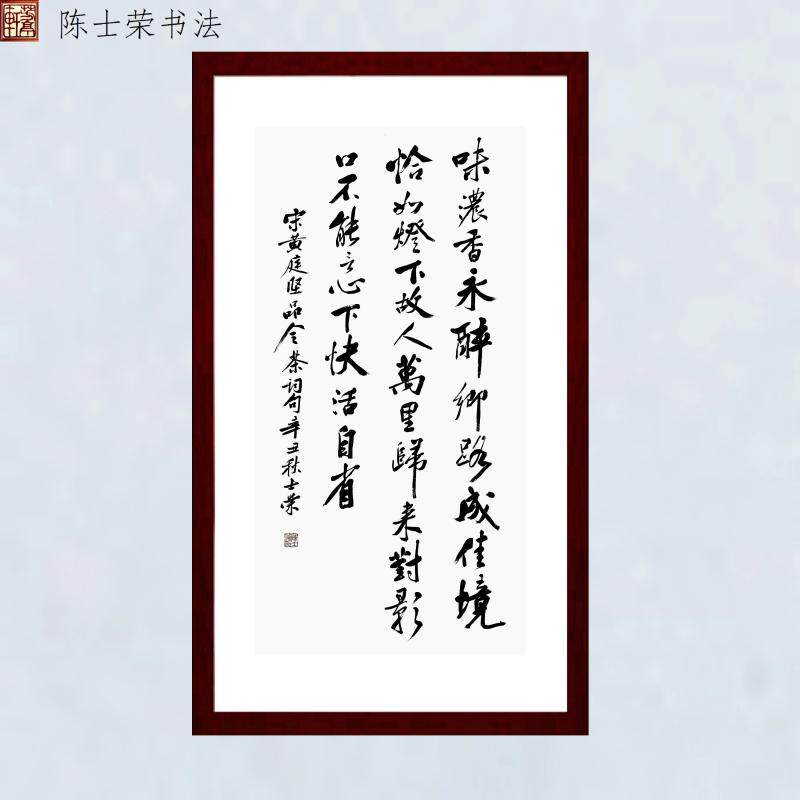 陈士荣书法
味濃香永醉鄉路成佳境
恰如燈下故人萬里歸来對影
口不能言心下快活自省
宋黄庭坚品令茶词句辛丑秋士荣